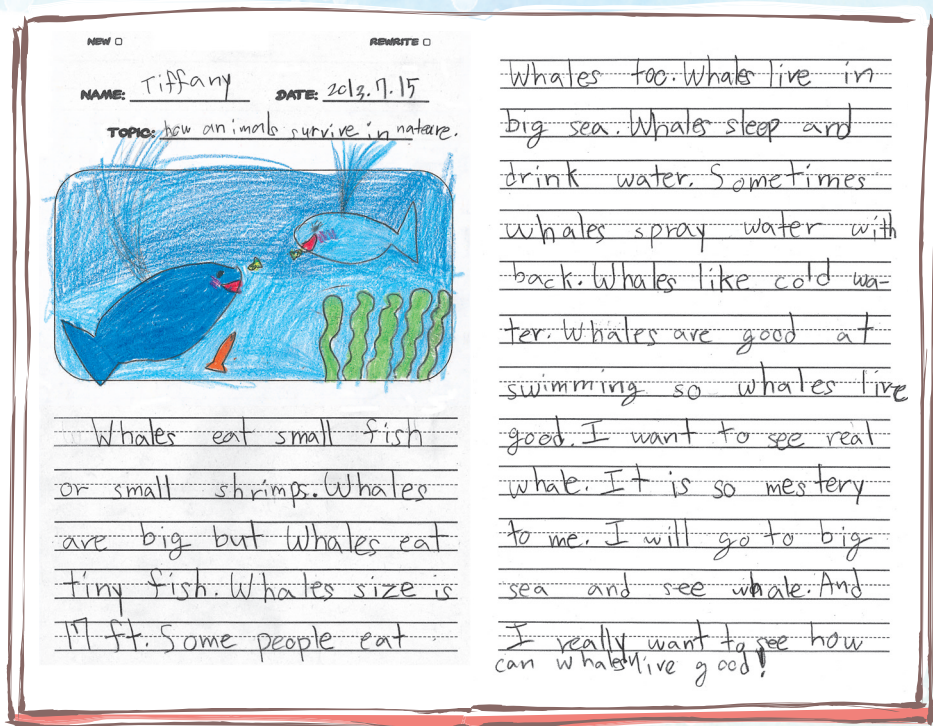 NEW
REWRITE
NAME: Tiffany
DATE: 2013.7.15
TOPIC: how animals survive in nateure.
Whales eat small fish
or small shrimps. Whales
are big but Whales eat
tiny fish. Whales size is
17 ft. Some people eat
Whales too. Whales live in
big sea. Whales sleep and
drink water. Sometimes
whales spray water with
back. Whales like cold wa-
ter. Whales are good at
swimming so whales live
good. I want to see real
whale. It is so mestery
to me. I will go to big
sea and see whale. And
I really want to see how
can whales live good!